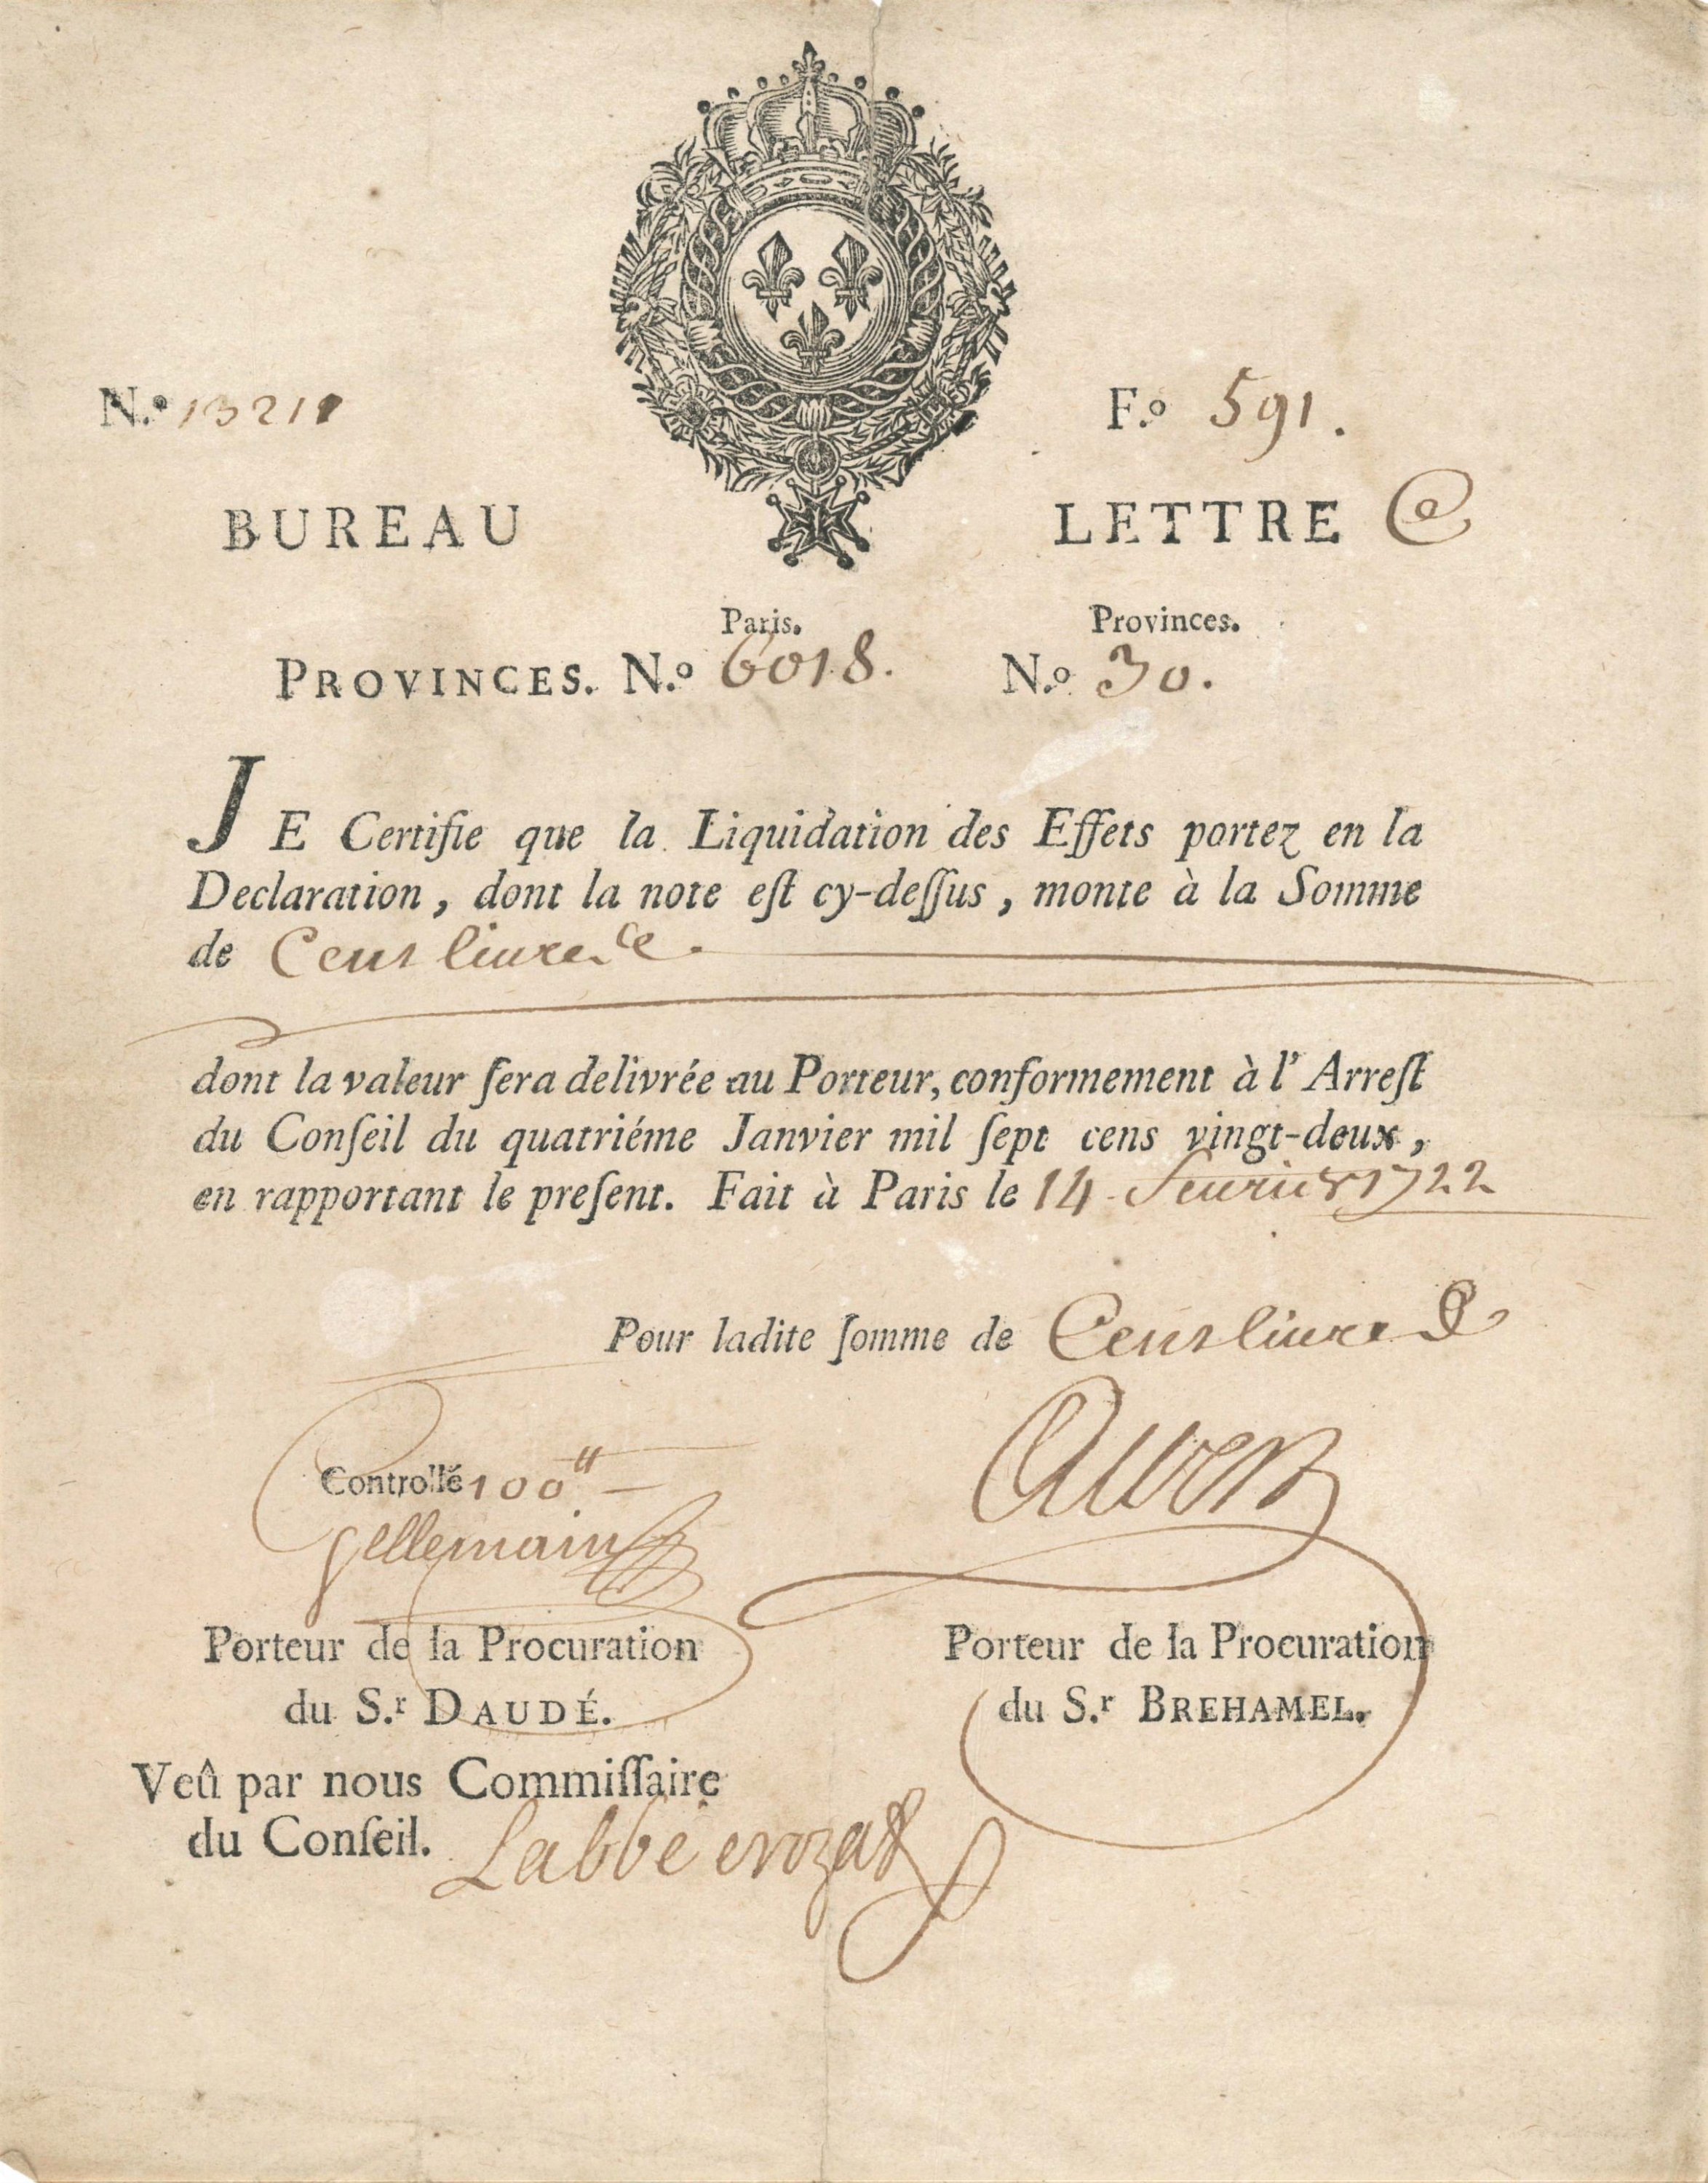 N.º 13211
F.º 591.
BUREAU
LETTRE @
Paris.
Provinces.
PROVINCES. N.º 6018.
N.º 30.
JE Certifie que la Liquidation des Effets portez en la
Declaration, dont la note eſt cy-deſſus, monte à la Somme
de Cent livres
dont la valeur ſera delivrée au Porteur, conformement à l'Arreſt
du Conſeil du quatriéme Janvier mil ſept cens vingt-deux,
en rapportant le preſent. Fait à Paris le 14 fevrier 1722
Pour ladite ſomme de Cent livres
Controllé 100
Gellemain
Porteur de la Procuration
du S.r DAUDÉ.
Porteur de la Procuration
du S.r BREHAMEL.
Veû par nous Commiſſaire
du Conſeil. Labbé